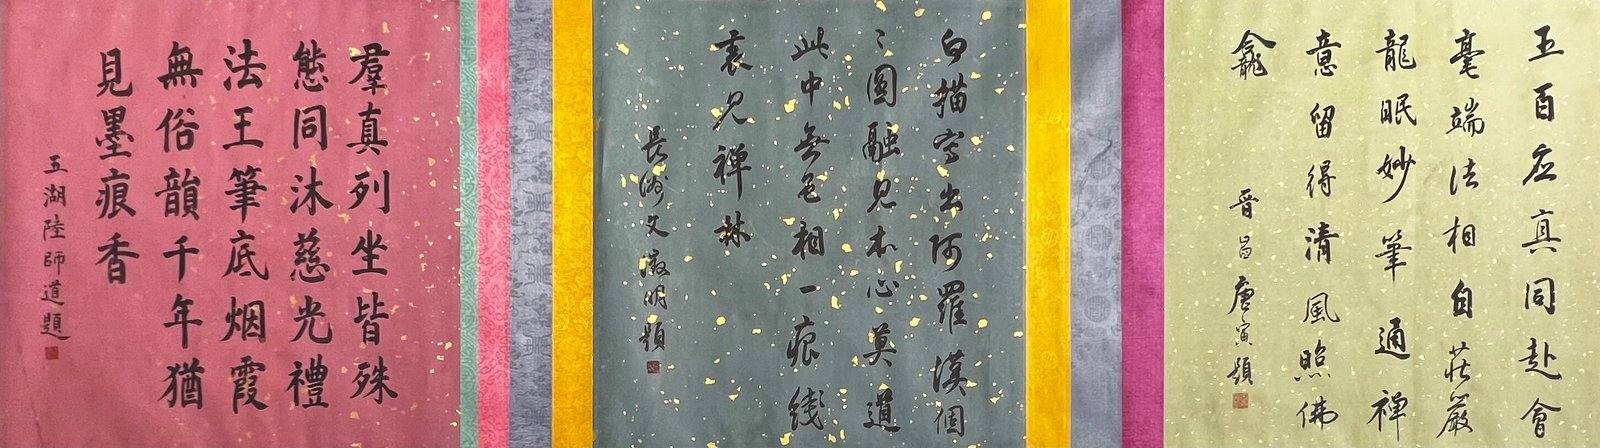 五百应真同赴會
毫端法相自莊嚴
龍眠妙筆通禪
意留得清風照佛
龕
晉昌唐寅題
白描寫出阿羅漢個
〻圓融見本心莫道
此中無色相一痕綫
裏見禅林
長洲文徵明題
羣真列坐皆殊
態同沐慈光禮
法王筆底烟霞
無俗韻千年猶
見墨痕香
五湖陸師道題